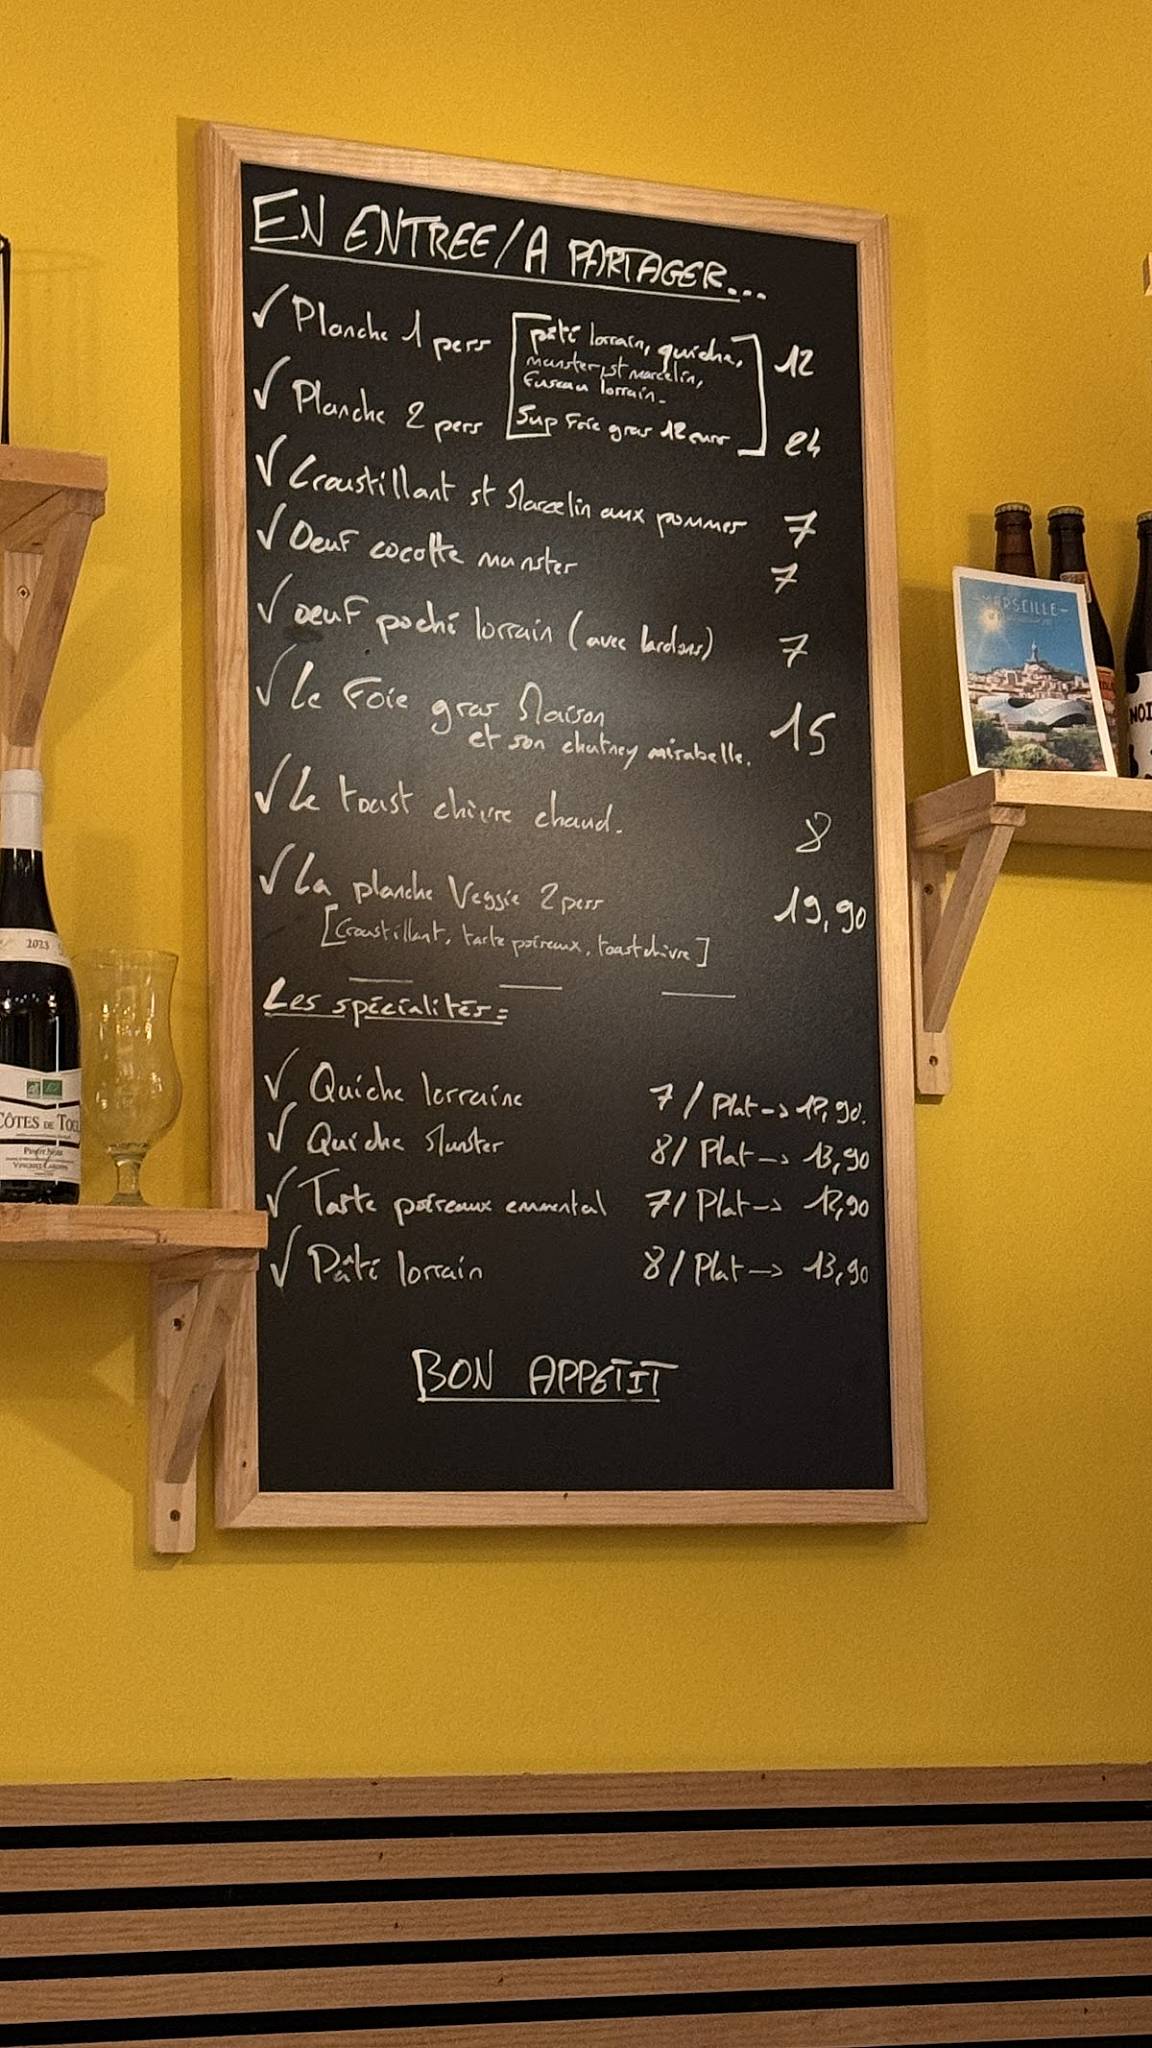 EN ENTREE/A PARTAGER...
✓ Planche 1 pers [pâté lorrain, quiche, 12
munster, st marcelin,
Fuseau lorrain.
✓ Planche 2 pers Sup Foie gras 12 euro] 24
✓ Croustillant st Marcelin aux pommes 7
✓ Oeuf cocotte munster 7
✓ oeuf poché lorrain (avec lardons) 7
✓ Le Foie gras Maison 15
et son chutney mirabelle.
✓ Le toast chèvre chaud. 8
✓ La planche Veggie 2 pers 19,90
[Croustillant, tarte poireaux, toast chèvre]
Les spécialités =
✓ Quiche lorraine 7 / Plat --> 12,90.
✓ Quiche Munster 8 / Plat --> 13,90
✓ Tarte poireaux emmental 7 / Plat --> 12,90
✓ Pâté lorrain 8 / Plat --> 13,90
BON APPETIT
MARSEILLE
NOI
2023
CÔTES DE TOUL
PINOT NOIR